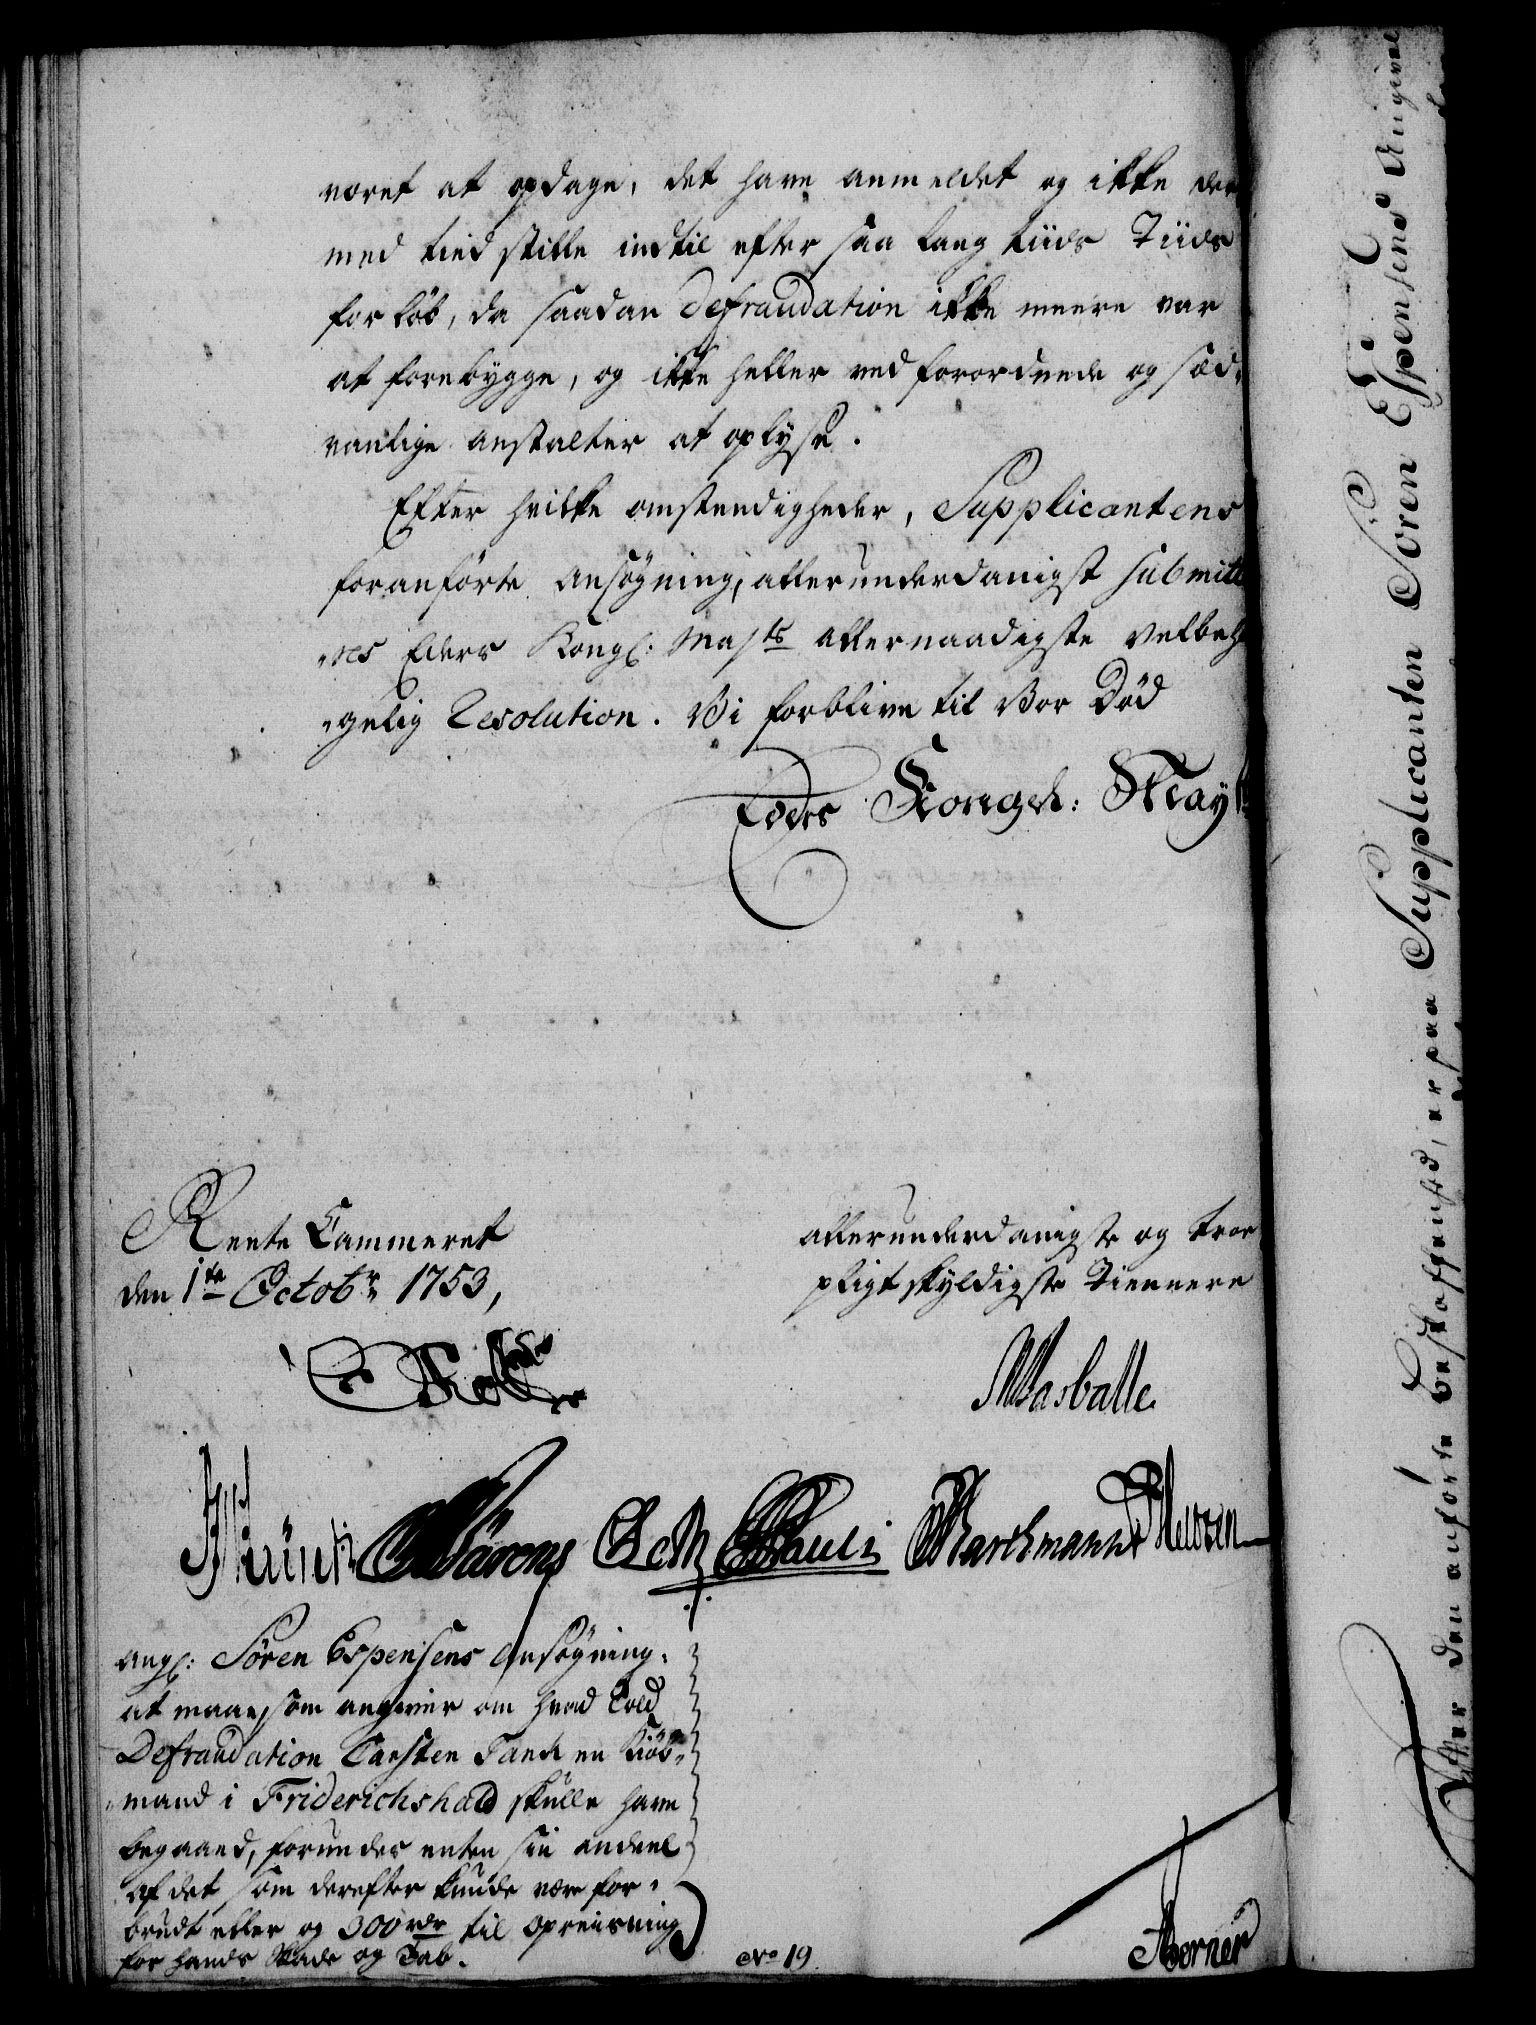 været at opdage, det have anmeldet og ikke der
med tied stille indtil efter saa lang tiids Tiids
forløb, da saadan Defraudation ikke meere var
at forebygge, og ikke heller ved forordnede og sæd,
vanlige anstalter at oplyse.
Efter hvilke omstendigheder, Supplicantens
foranførte ansøgning, allerunderdanigst submitte
„res Eders Kongl: Majts allernaadigste velbeha
„gelig Resolution. Vi forblive til vor Død
Eders Kongel: Mayts
Rente Cammeret
den 1te Octobr 1753,
allerunderdanigste og troe
pligtskyldigste Tiennere
Masballe
Pauli Marckmann
angl: Søren Espensens Ansøgning,
at maae, som angiver om hvad Told
Defraudation Carsten Tank en Kiøb„
„mand i Friderichshald skulle have
begaaed, forundes enten sin andeel
af det som derefter kunde være for„
brudt eller og 300 rdr til opreisning
for hands Skade og Tab.
No 19
Æfter den anførte Beskaffenhed, er paa Supplicanten Sören Espensens Angivel